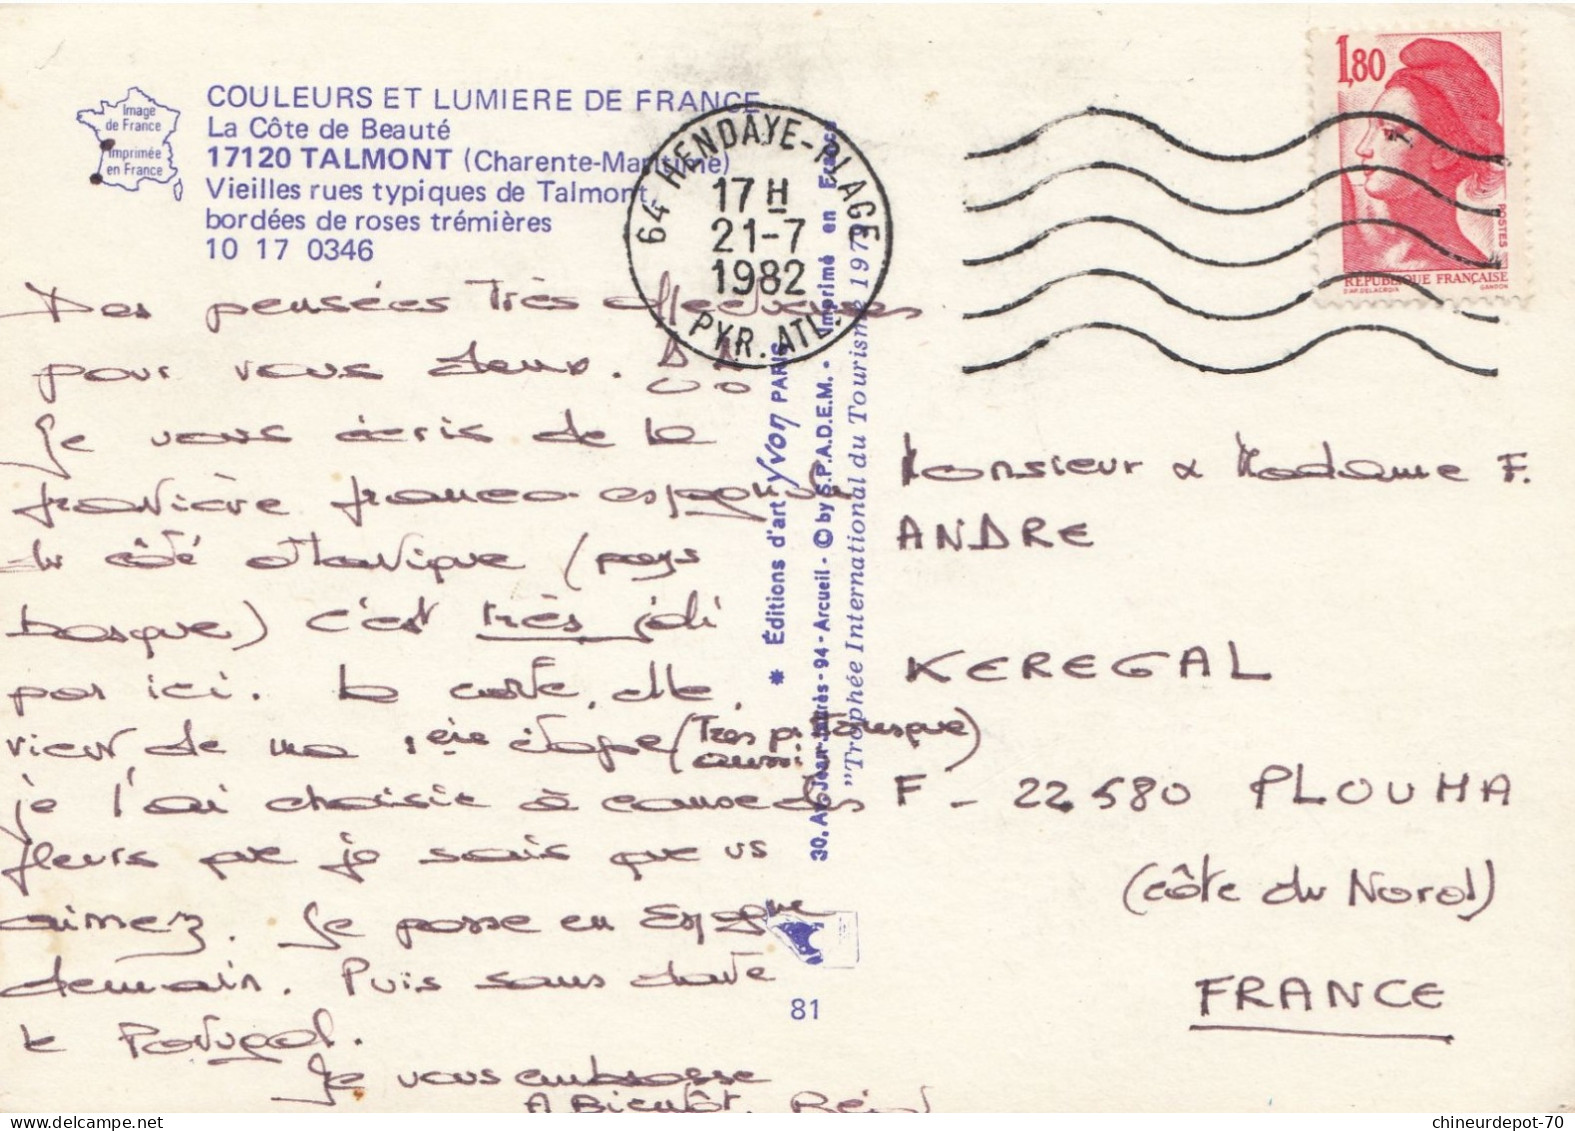 COULEURS ET LUMIERE DE FRANCE
La Côte de Beauté
17120 TALMONT (Charente-Maritime)
Vieilles rues typiques de Talmont
bordées de roses trémières
10 17 0346
Image
de France
Imprimée
en France
64 HENDAYE-PLAGE
17 H
21-7
1982
PYR. ATL.
1,80
POSTES
RÉPUBLIQUE FRANÇAISE
D'AP. DELACROIX GANDON
Des pensées très affectueuses
pour vous deux. !!
Je vous écris de la
frontière franco-espagnole
du côté atlantique (pays
basque) c'est très joli
par ici. la carte, elle,
vient de ma 1ère étape (très pittoresque
aussi)
je l'ai choisie à cause des
fleurs que je sais que vs
aimez. Je passe en Espagne
demain. Puis sans doute
le Portugal.
Je vous embrasse
A Bientôt,
* Éditions d'art YVON PARIS
30, Av. Jean-Jaurès - 94 - Arcueil - © by S.P.A.D.E.M. - Imprimé en France
"Trophée International du Tourisme 197
81
Monsieur & Madame F.
ANDRE
KEREGAL
F - 22580 PLOUHA
(côte du Nord)
FRANCE
chineurdepot-70